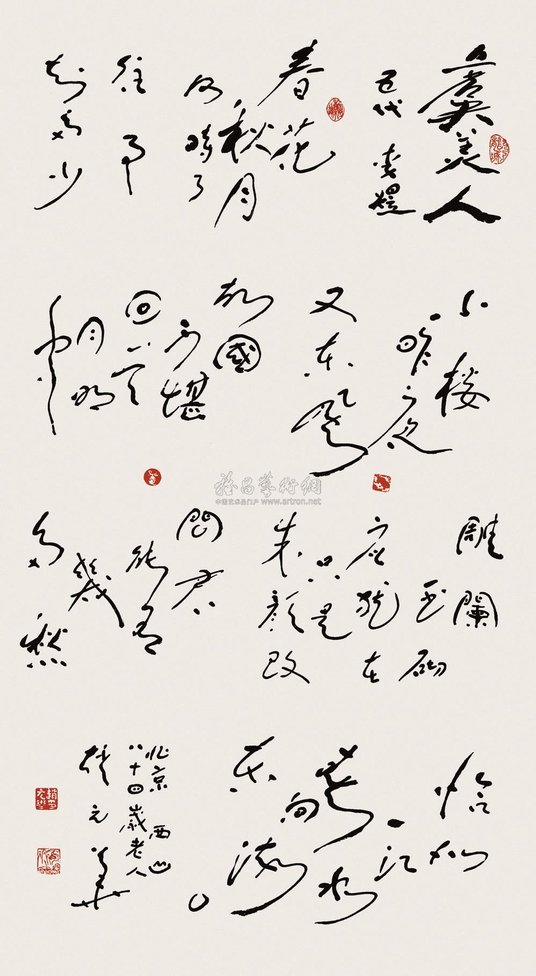 虞美人
五代 李煜
春花
秋月
何時了
往事
知多少
小楼
昨夜
又东风
故國
不堪
回首
月明
中
雕闌
玉砌
应犹在
只是
朱颜改
問君
能有
幾
多愁
恰似
一江
春水
向
东流
北京 西山
八十四歲老人
雅昌藝術網
中国艺术品门户 www.artron.net